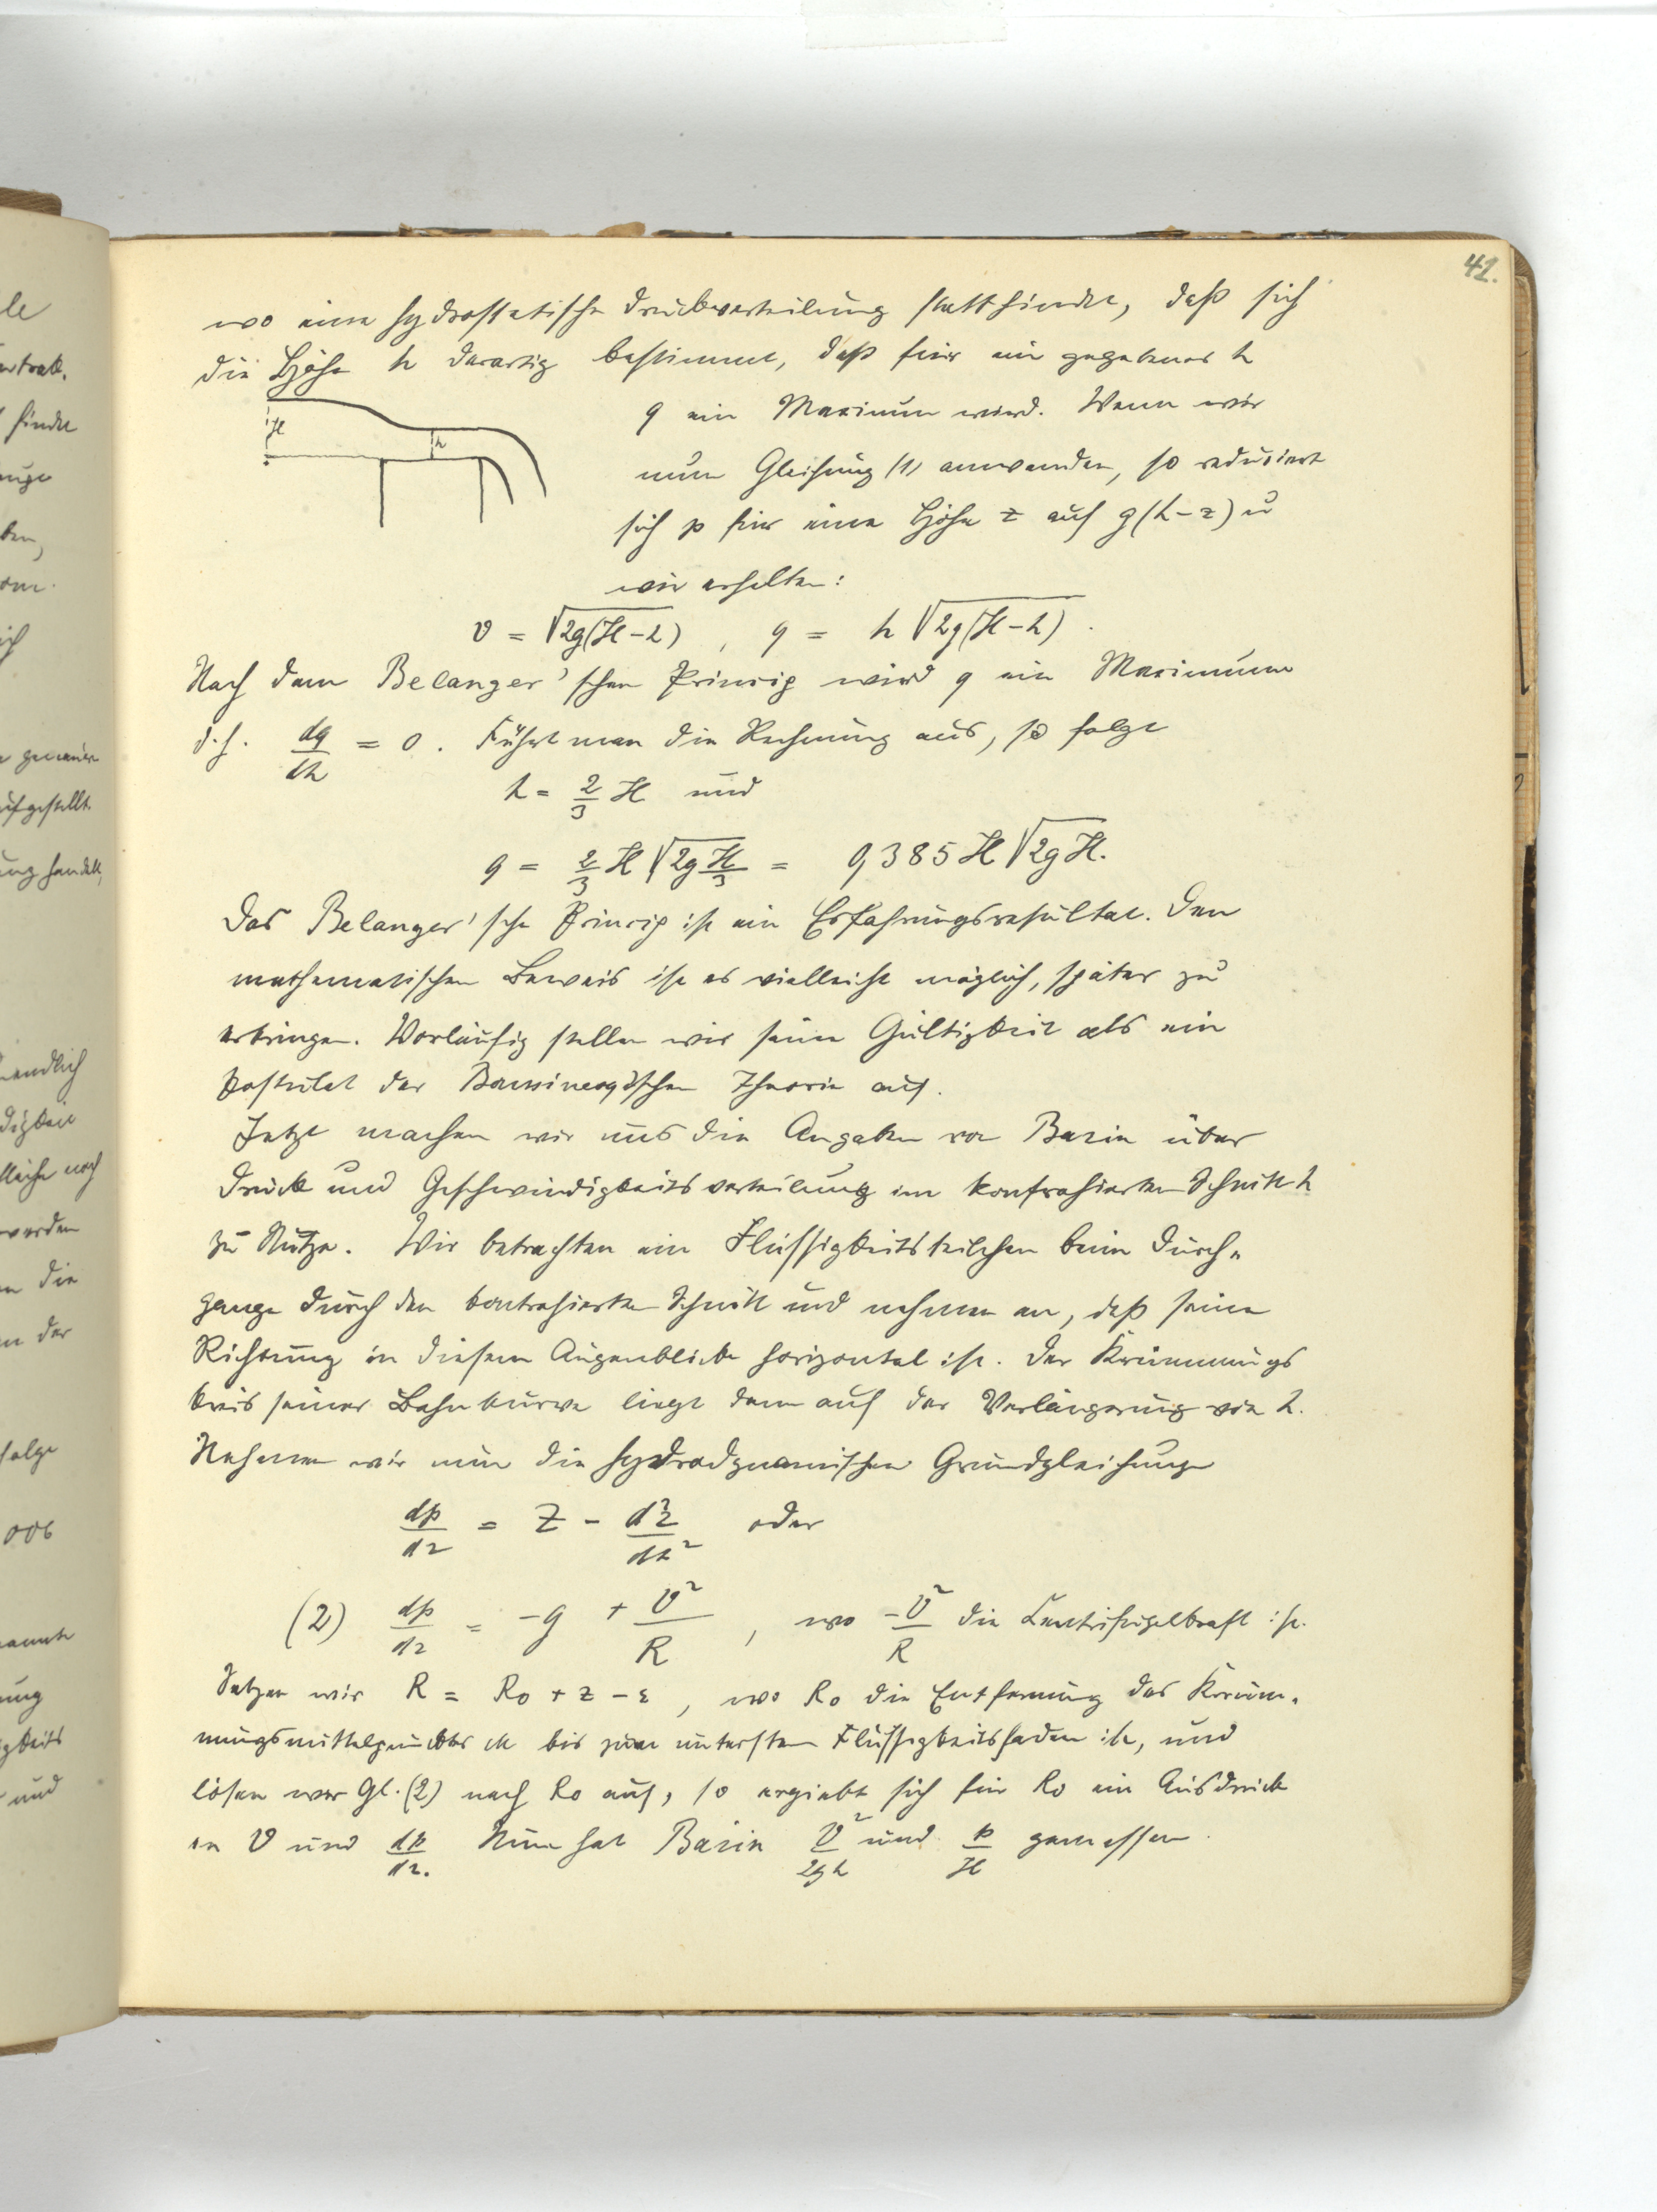 41.
wo eine hydrostatische Druckverteilung stattfindet, daß sich
die Höhe h derartig bestimmt, daß für ein gegebenes h
H h
q ein Maximum wird. Wenn wir
nun Gleichung (1) anwenden, so reduciert
sich p für eine Höhe z auf g(h-z) u
wir erhalten:
v = √2g(H-h) , q = h √2g(H-h) .
Nach dem Belanger'schen Princip wird q ein Maximum
d.h. dq/dh = 0. Führt man die Rechnung aus, so folgt
h = 2/3 H und
q = 2/3 H √2g H/3 = 0,385 H √2gH.
Das Belanger'sche Princip ist ein Erfahrungsresultat. Den
mathematischen Beweis ist es vielleicht möglich, später zu
erbringen. Vorläufig stellen wir seine Gültigkeit als ein
Postulat der Boussinesq'schen Theorie auf.
Jetzt machen wir uns die Angaben von Bazin über
Druck und Geschwindigkeitsverteilung im kontrahierten Schnitt h
zu Nutze. Wir betrachten ein Flüssigkeitsteilchen beim Durch-
gange durch den kontrahierten Schnitt und nehmen an, daß seine
Richtung in diesem Augenblicke horizontal ist. Der Krümmungs
kreis seiner Bahnkurve liegt dann auf der Verlängerung von h.
Nehmen wir nun die hydrodynamischen Grundgleichungen
dp/dz = Z - d²z/dt² oder
(2) dp/dz = -g + v²/R , wo -v²/R die Centrifugalkraft ist.
Setzen wir R = R0 + z - ε , wo R0 die Entfernung des Krüm-
mungsmittelpunktes M bis zum untersten Flüssigkeitsfaden ist, und
lösen wir Gl. (2) nach R0 auf, so ergiebt sich für R0 ein Ausdruck
in v und dp/dz. Nun hat Bazin v²/2gh und p/H gemessen.